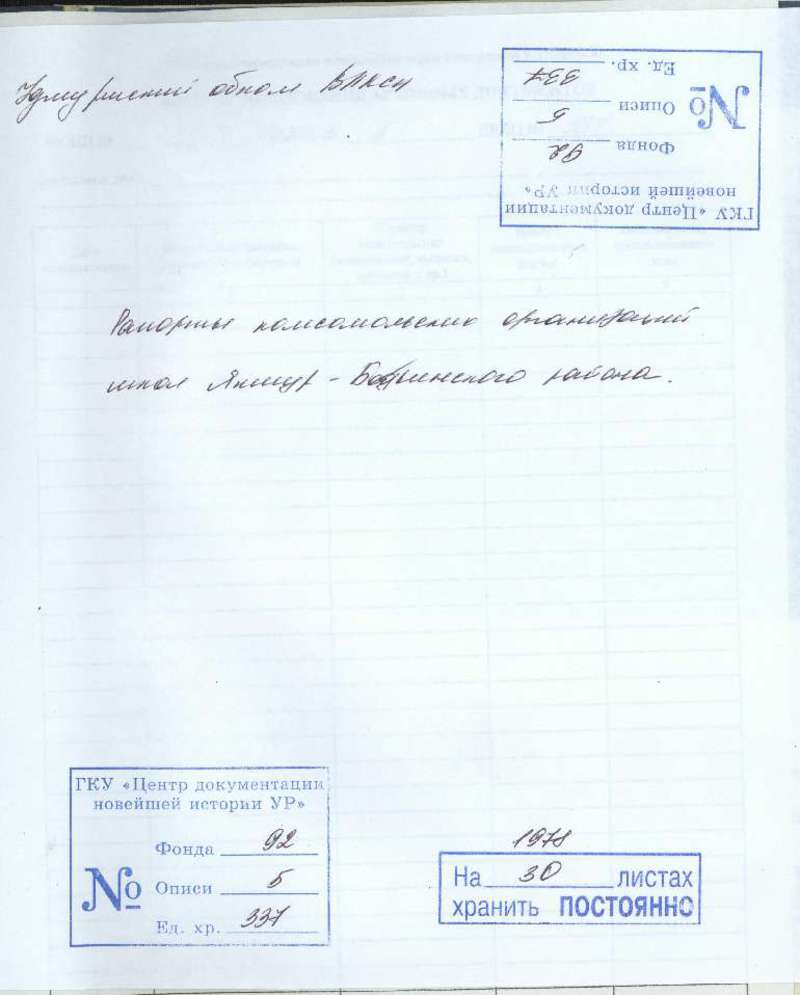 Удмуртский обком ВЛКСМ
ГКУ «Центр документации
новейшей истории УР»
№
Фонда 92
Описи 5
Ед. хр. 337
Рапорты комсомольских организаций
школ Якшур-Бодьинского района.
ГКУ «Центр документации
новейшей истории УР»
№
Фонда 92
Описи 5
Ед. хр. 337
1978
На 30 листах
хранить ПОСТОЯННО